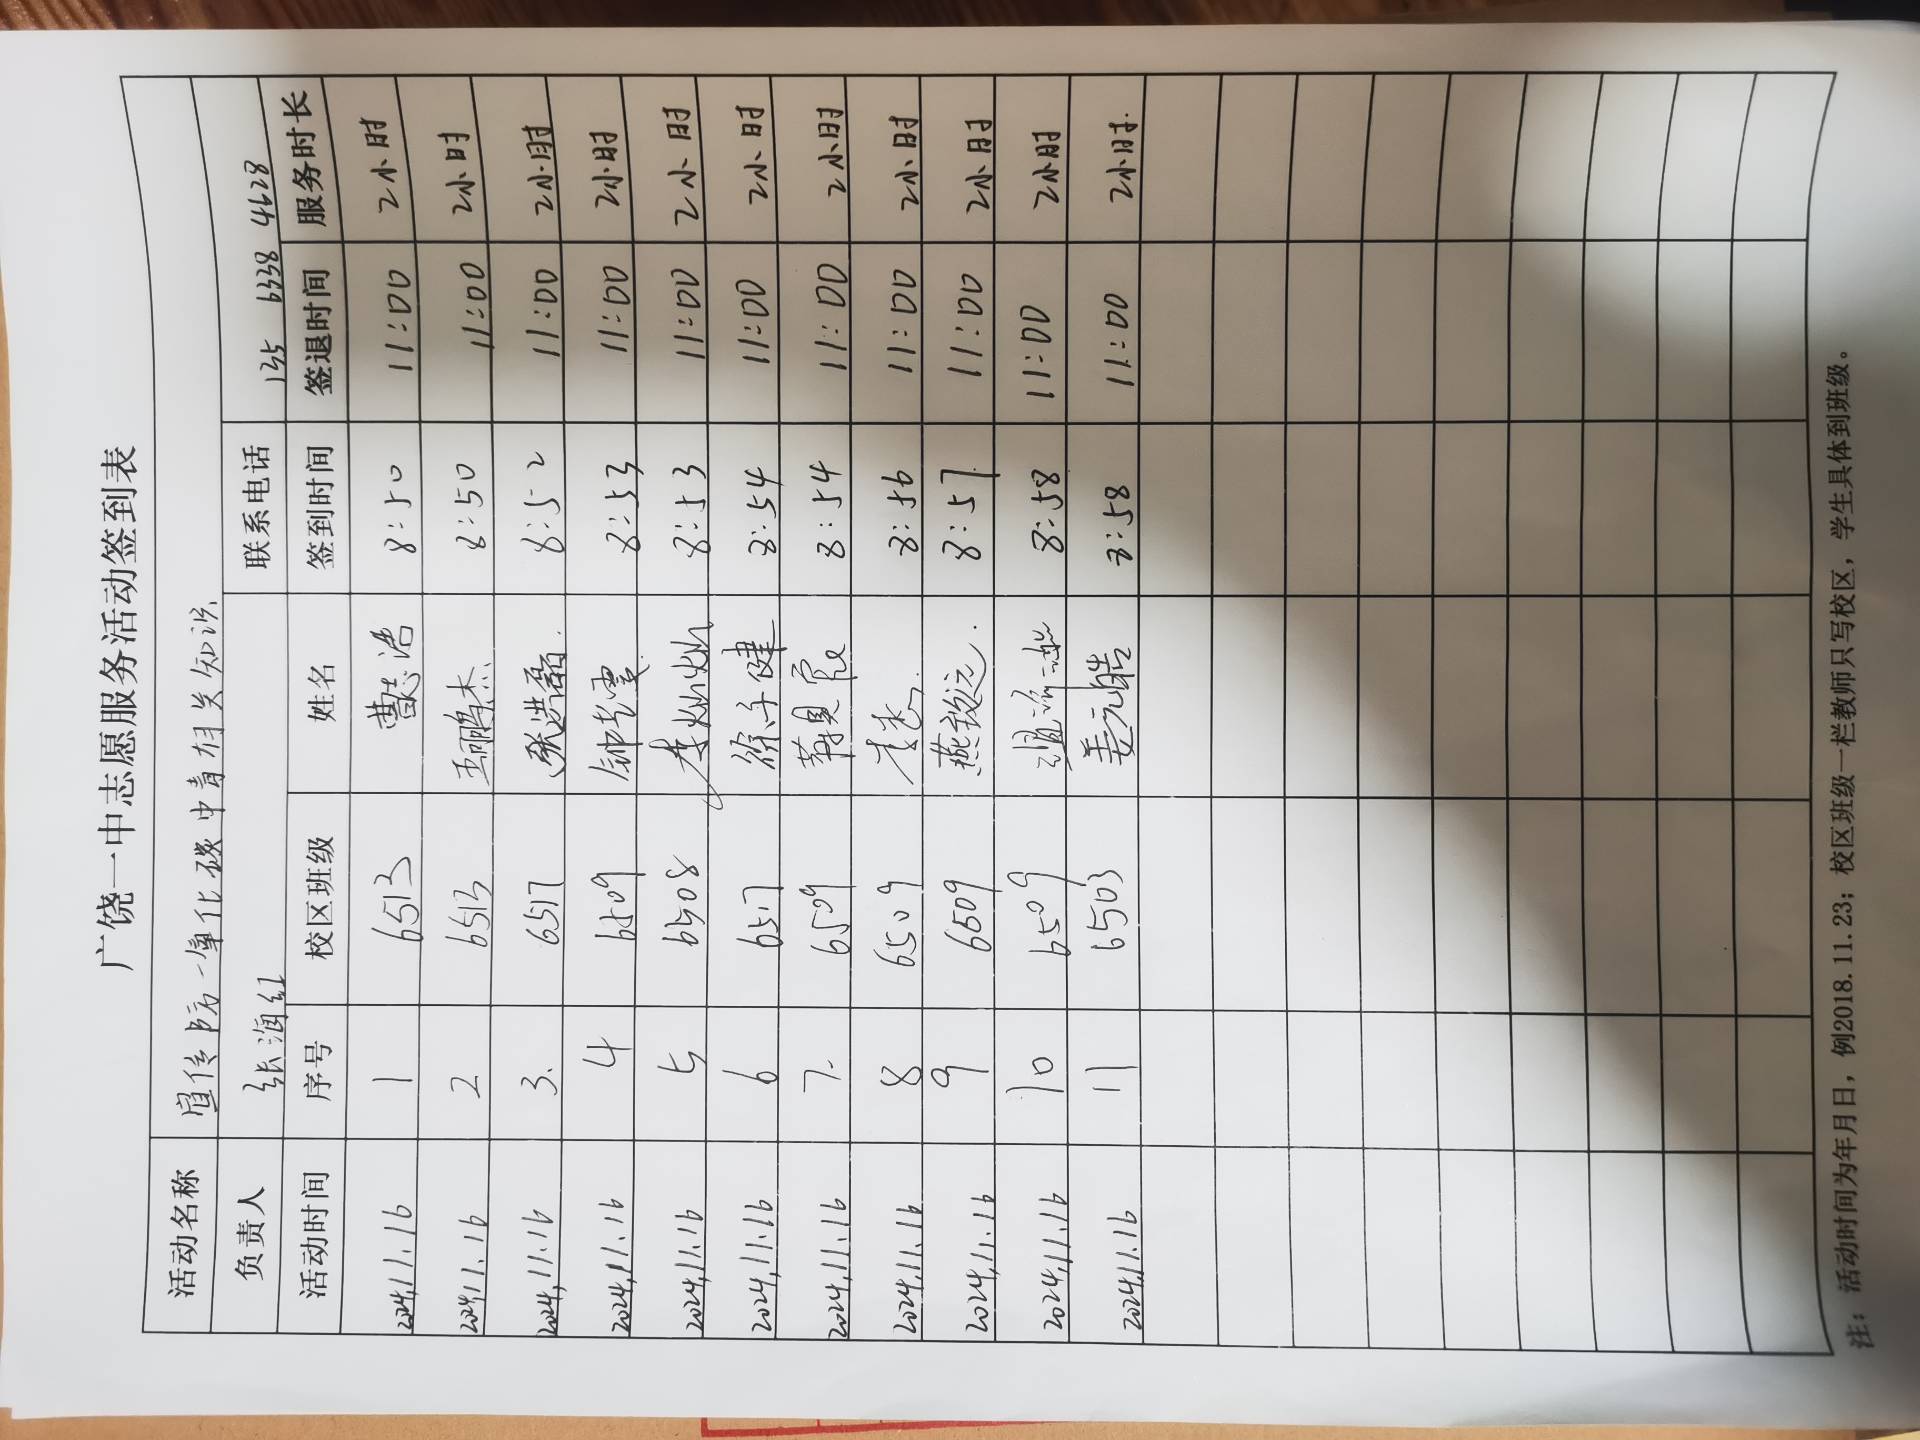 广饶一中志愿服务活动签到表
活动名称 宣传防一氧化碳中毒相关知识
负责人 张润红 联系电话 135 6338 4628
活动时间 序号 校区班级 姓名 签到时间 签退时间 服务时长
2024.11.16 1 6513 志浩 8:50 11:00 2小时
2024.11.16 2 6513 王鹏杰 8:50 11:00 2小时
2024.11.16 3. 6517 张洪 8:52 11:00 2小时
2024.11.16 4 6509 8:53 11:00 2小时
2024.11.16 5 6508 李灿灿 8:53 11:00 2小时
2024.11.16 6 6517 徐子健 8:54 11:00 2小时
2024.11.16 7. 6509 8:54 11:00 2小时
2024.11.16 8 6509 李 8:56 11:00 2小时
2024.11.16 9 6509 燕锐元 8:57 11:00 2小时
2024.11.16 10 6509 8:58 11:00 2小时
2024.11.16 11 6503 姜元皓 8:58 11:00 2小时.
注：活动时间为年月日，例2018.11.23；校区班级一栏教师只写校区，学生具体到班级。